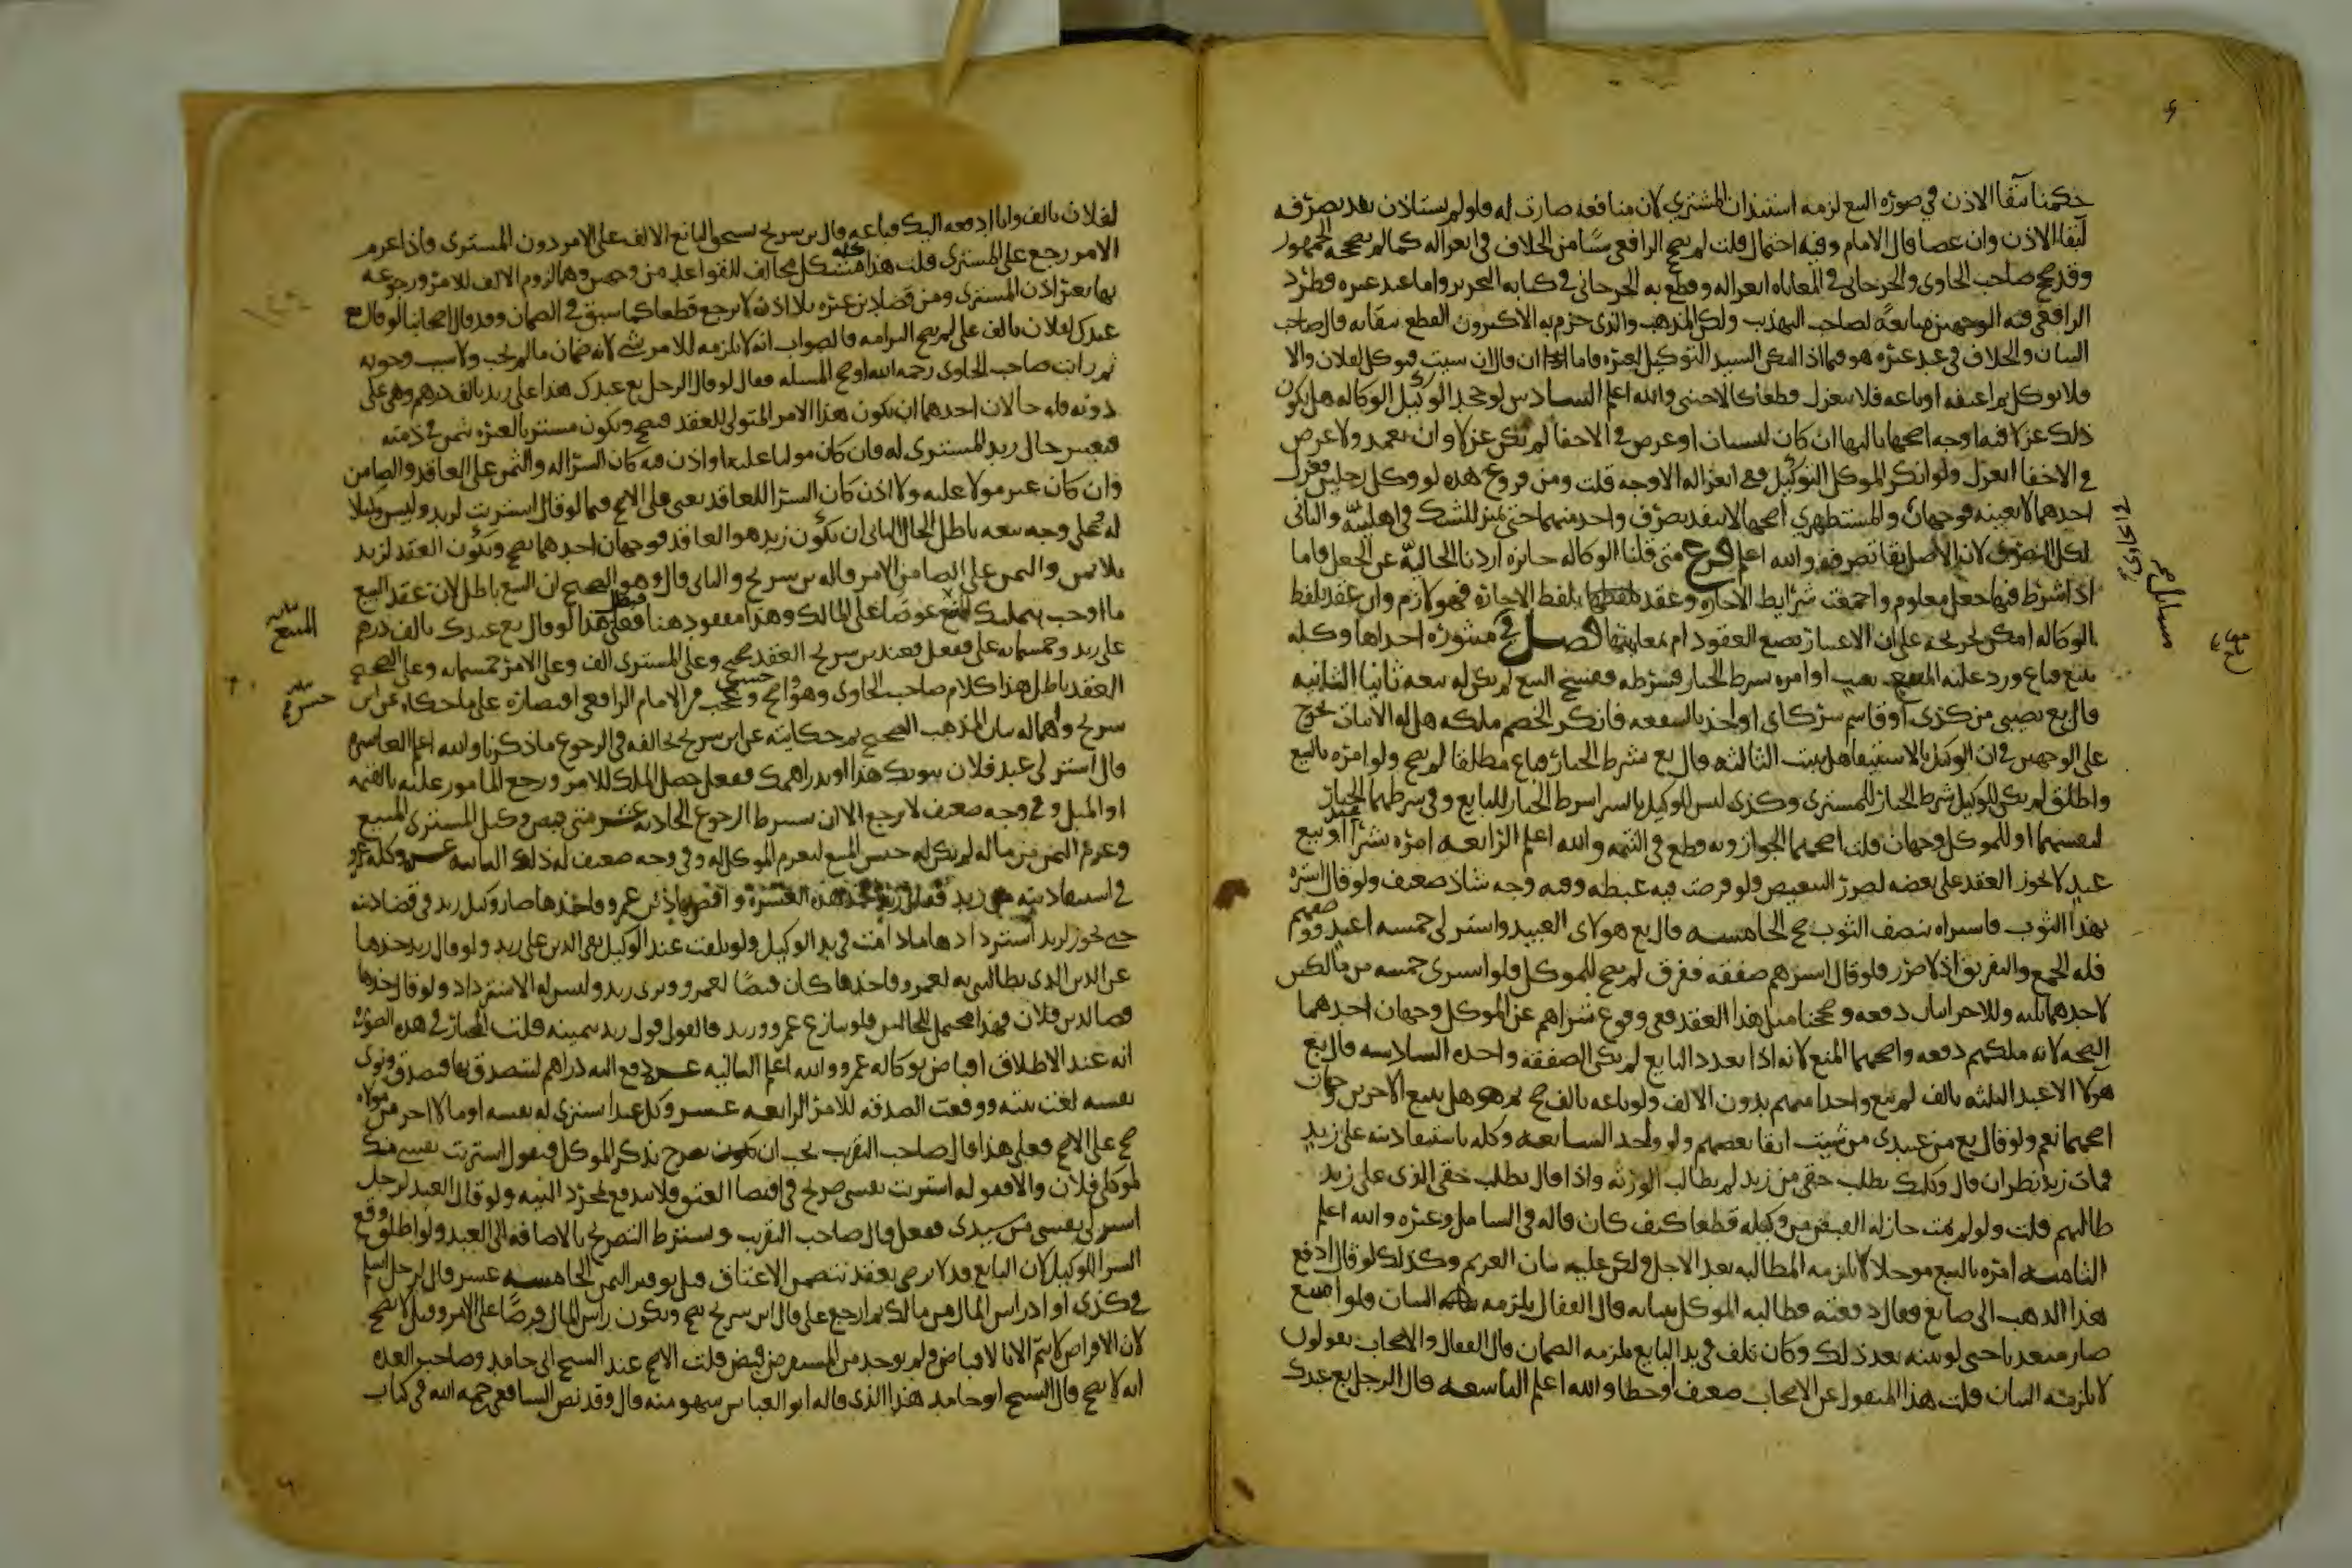 حكمنا ببقا الاذن في صورة البيع لزمه استئذان المشتري لان منافعه صارت له فلو لم يستاذن نفذ تصرفه
لبقا الاذن وان عصا قال الامام وفيه احتمال قلت لم يصحح الرافعي شيا من الخلاف في انعزاله كما لم يصححه الجمهور
وقد صحح صاحب الحاوي والجرجاني في المعاياة انعزاله وقطع به الجرجاني في كتابه التحرير واما عبد غيره فطرد
الرافعي فيه الوجهين متابعة لصاحب التهذيب ولكن المذهب والذي جزم به الاكثرون القطع ببقايه قال صاحب
البيان والخلاف في عبد غيره هو فيما اذا امر السيد التوكيل لغيره فاما ان قال ان شيت فتوكل لفلان والا
فلا توكل ثم اعتقه او باعه فلا ينعزل قطعا كالاجنبي والله اعلم السادس لو جحد الوكيل الوكالة هل يكون
ذلك عزلا فيه اوجه اصحها ثالثها ان كان لنسيان او غرض في الاخفا لم يكن عزلا وان تعمد ولا غرض
في الاخفا انعزل ولو انكر الموكل التوكيل ففي انعزاله الاوجه قلت ومن فروع هذه لو وكل رجلين فعزل
احدهما لا بعينه فوجهان والمستظهري اصحها لا ينفذ تصرف واحد منهما حتى يميز للشك في اهليته والثاني
لكل التصرف لان الاصل بقا تصرفه والله اعلم فرع متى قلنا الوكالة جايزة اردنا الخالية عن الجعل فاما
اذا شرط فيها جعل معلوم واجتمعت شرايط الاجارة وعقد بلفظ الاجارة فهو لازم وان عقد بلفظ
الوكالة امكن تخريجه على ان الاعتبار بصيغ العقود ام بمعانيها فصل في مسايل منثورة احداها وكله
ببيع فباع ورد عليه المبيع بعيب او امره بشرط الخيار فشرطه ففسخ البيع لم يكن له بيعه ثانيا الثانية
قال بع نصيبي من كذى او قاسم شركاي او خذ بالشفعة فانكر الخصم ملكه هل له الاثبات يخرج
على الوجهين في ان الوكيل بالاستيفا هل يثبت الثالثة قال بع بشرط الخيار فباع مطلقا لم يصح ولو امره بالبيع
واطلق لم يكن للوكيل شرط الخيار للمشتري وكذى ليس للوكيل بالشرا شرط الخيار للبايع وفي شرطهما الخيار
لنفسهما او للموكل وجهان قلت اصحهما الجواز وبه قطع في التتمة والله اعلم الرابعة امره بشرا او بيع
عبد لا يجوز العقد على بعضه لضرر التبعيض ولو فرضت فيه غبطة وفيه وجه شاذ ضعيف ولو قال اشتره
بهذا الثوب فاشتراه بنصف الثوب صح الخامسة قال بع هولاي العبيد واشتر لي خمسة اعبد ووصفهم
فله الجمع والتفريق اذ لا ضرر فلو قال اشترهم صفقة ففرق لم يصح للموكل فلو اشترى خمسة من مالكين
لاحدهما ثلثة وللاخر اثنان دفعة وصححنا مثل هذا العقد ففي وقوع شراهم عن الموكل وجهان احدهما
الصحة لانه ملكهم دفعة واصحهما المنع لانه اذا تعدد البايع لم تكن الصفقة واحدة السادسة قال بع
هولا الاعبد الثلثة بالف لم يبع واحدا منهم بدون الالف ولو باعه بالف صح ثم هل يبيع الاخرين وجهان
اصحهما نعم ولو قال بع من عبيدي من شيت ابقا بعضهم ولو واحد السابعة وكله باستيفا دينه على زيد
فمات زيد نظر ان قال وكلتك بطلب حقي من زيد لم يطالب الورثة واذا قال بطلب حقي الذي على زيد
طالبهم قلت ولو لم يمت جاز له القبض من وكيله قطعا كيف كان قاله في الشامل وغيره والله اعلم
الثامنة امره بالبيع موجلا لا يلزمه المطالبة بعد الاجل ولكن عليه بيان الغريم وكذلك لو قال ادفع
هذا الذهب الى صايغ فقال دفعته فطالبه الموكل ببيانه قال القفال يلزمه البيان فلو امتنع
صار متعديا حتى لو بينه بعد ذلك وكان تلف في يد البايع يلزمه الضمان قال القفال والاصحاب يقولون
لا يلزمه البيان قلت هذا المنقول عن الاصحاب ضعيف او خطا والله اعلم التاسعة قال الرجل بع عبدك
في الحاوي
مسايل صح
لفلان بالف وانا ادفعه اليك فباعه قال بن سريج يستحق البايع الالف على الامر دون المشتري فاذا غرم
الامر رجع على المشتري قلت هذا كله مشكل مخالف للقواعد من وجهين وهما لزوم الالف للامر ورجوعه
بها بغير اذن المشتري ومن قضا دين غيره بلا اذن لا يرجع قطعا كما سبق في الضمان وقد قال اصحابنا لو قال بع
عبدك لفلان بالف علي لم يصح التزامه فالصواب انه لا يلزمه للامر شي لانه ضمان ما لم يجب ولا سبب وجوبه
ثم رايت صاحب الحاوي رحمه الله اوضح المسلة فقال لو قال الرجل بع عبدك هذا على زيد بالف درهم وهي علي
دونه فله حالان احدهما ان يكون هذا الامر المتولي للعقد فيصح ويكون مشتريا لغيره بثمن في ذمته
فيعتبر حال زيد المشتري له فان كان موليا عليه او اذن فيه كان الشرا له والثمن على العاقد والضامن
وان كان غير مولا عليه ولا اذن كان الشرا للعاقد يعني على الاصح فيما لو قال اشتريت لزيد وليس وكيلا
له وعلى وجه بيعه باطل الحال الثاني ان يكون زيد هو العاقد فوجهان احدهما يصح ويكون العقد لزيد
بلا ثمن والثمن على الضامن الامر قاله بن سريج والثاني قال وهو الصحيح ان البيع باطل لان عقد البيع
ما اوجب تمليك المبيع عوضا على المالك وهذا مفقود هنا فعلى هذا لو قال بع عبدك بالف درهم
على زيد وخمسمايه علي ففعل فعند بن سريج العقد صحيح وعلى المشتري الف وعلى الامر خمسمايه وعلى الصحيح
العقد باطل هذا كلام صاحب الحاوي وهو واضح حسن وعجب من الامام الرافعي اقتصاره على ما حكاه عن ابن
سريج واهماله بيان المذهب الصحيح ثم حكايته عن ابن سريج تخالفه في الرجوع ما ذكرنا والله اعلم العاشرة
قال اشتر لي عبد فلان بثوبك هذا او بدراهمك ففعل حصل الملك للامر ورجع المامور عليه بالقيمة
او المثل وفي وجه ضعيف لا يرجع الا ان يشرط الرجوع الحادية عشر متى قبض وكيل المشتري المبيع
وغرم الثمن من ماله لم يكن له حبس المبيع ليغرم الموكل له وفي وجه ضعيف له ذلك الثانية عشر وكله عمرو
في استيفا دينه من زيد فقال زيد خذ هذه العشرة واقض بها دين عمرو فاخذها صار وكيل زيد في قضا دينه
حتى يجوز لزيد استردادها ما دامت في يد الوكيل ولو تلفت عند الوكيل بقي الدين على زيد ولو قال زيد خذها
عن الدين الذي يطالبني به لعمرو فاخذها كان قبضا لعمرو وبري زيد وليس له الاسترداد ولو قال خذها
قضا لدين فلان فهذا محتمل للحالين فلو تنازع عمرو وزيد فالقول قول زيد بيمينه قلت المختار في هذه الصورة
انه عند الاطلاق اقباض بوكالة عمرو والله اعلم الثالثة عشر دفع اليه دراهم ليتصدق بها فتصدق ونوى
نفسه لغت نيته ووقعت الصدقة للامر الرابعة عشر وكل عبدا ليشتري له نفسه او مالا اخر من مولاه
صح على الاصح فعلى هذا قال صاحب التقريب يجب ان يصرح بذكر الموكل فيقول اشتريت نفسي منك
لموكلي فلان والا فقوله اشتريت نفسي صريح في اقتضا العتق فلا يندفع بمجرد النية ولو قال العبد لرجل
اشتر لي نفسي من سيدي ففعل قال صاحب التقريب ويشترط التصريح بالاضافة الى العبد ولو اطلق وقع
الشرا للوكيل لان البايع قد لا يرضى بعقد يتضمن الاعتاق قبل توفير الثمن الخامسة عشر قال لرجل اسلم
في كذى او اد راس المال من مالك ثم ارجع علي قال ابن سريج يصح ويكون راس المال قرضا على الامر وقيل لا يصح
لان الاقراض لا يتم الا بالاقباض ولم يوجد من المستقرض قبض قلت الاصح عند الشيخ ابي حامد وصاحب العدة
انه لا يصح قال الشيخ ابو حامد هذا الذي قاله ابو العباس سهو منه قال وقد نص الشافعي رحمه الله في كتاب
بيان
المبيع
بيان
حسن صح